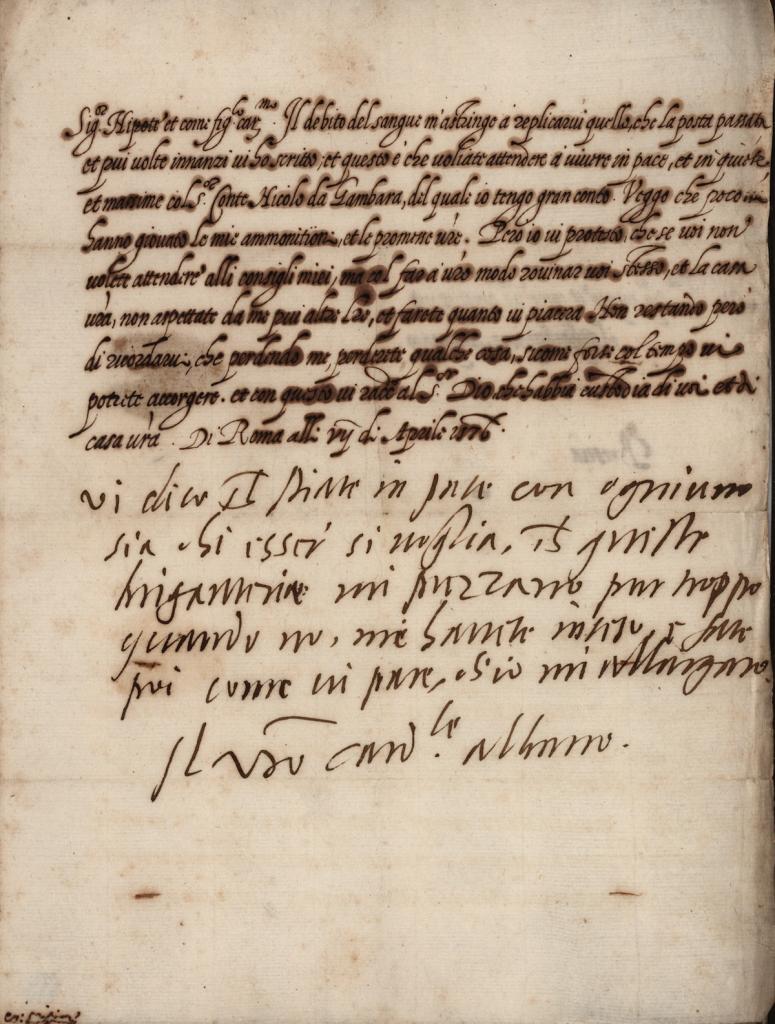 Sig.or Nipote et come fig.lo car.mo Il debito del sangue m'astringe à replicarvi quello, che la posta passata
et piu volte innanzi vi ho scritto, et questo è che vogliate attendere à vivere in pace, et in quiete
et massime col s.or Conte Nicolo da Gambara, del quale io tengo gran conto. Veggo che poco
hanno giovato le mie ammonitioni, et le promesse vr̃e. Però io vi protesto, che se voi non
volete attendere alli consigli miei, ma col far à vr̃o modo rovinar voi stesso, et la casa
vr̃a, non aspettate da me piu altre lr̃e, et farete quanto vi piacerà Non restando però
di ricordarvi, che perdendo me, perderete qualche cosa, sicome forse col tempo vi
potrete accorgere. et con questo vi racc.o al s.or Dio che habbia custodia di voi et di
casa vr̃a. Di Roma alli vij di Aprile 1576.
vi dico state in pace con ogniuno
sia chi esser si voglia, queste
briganterie mi puzzano pur troppo
quando no, me havete inteso, e fate
poi come vi pare, ch'io mi
Il vr̃o Card.le Albano.